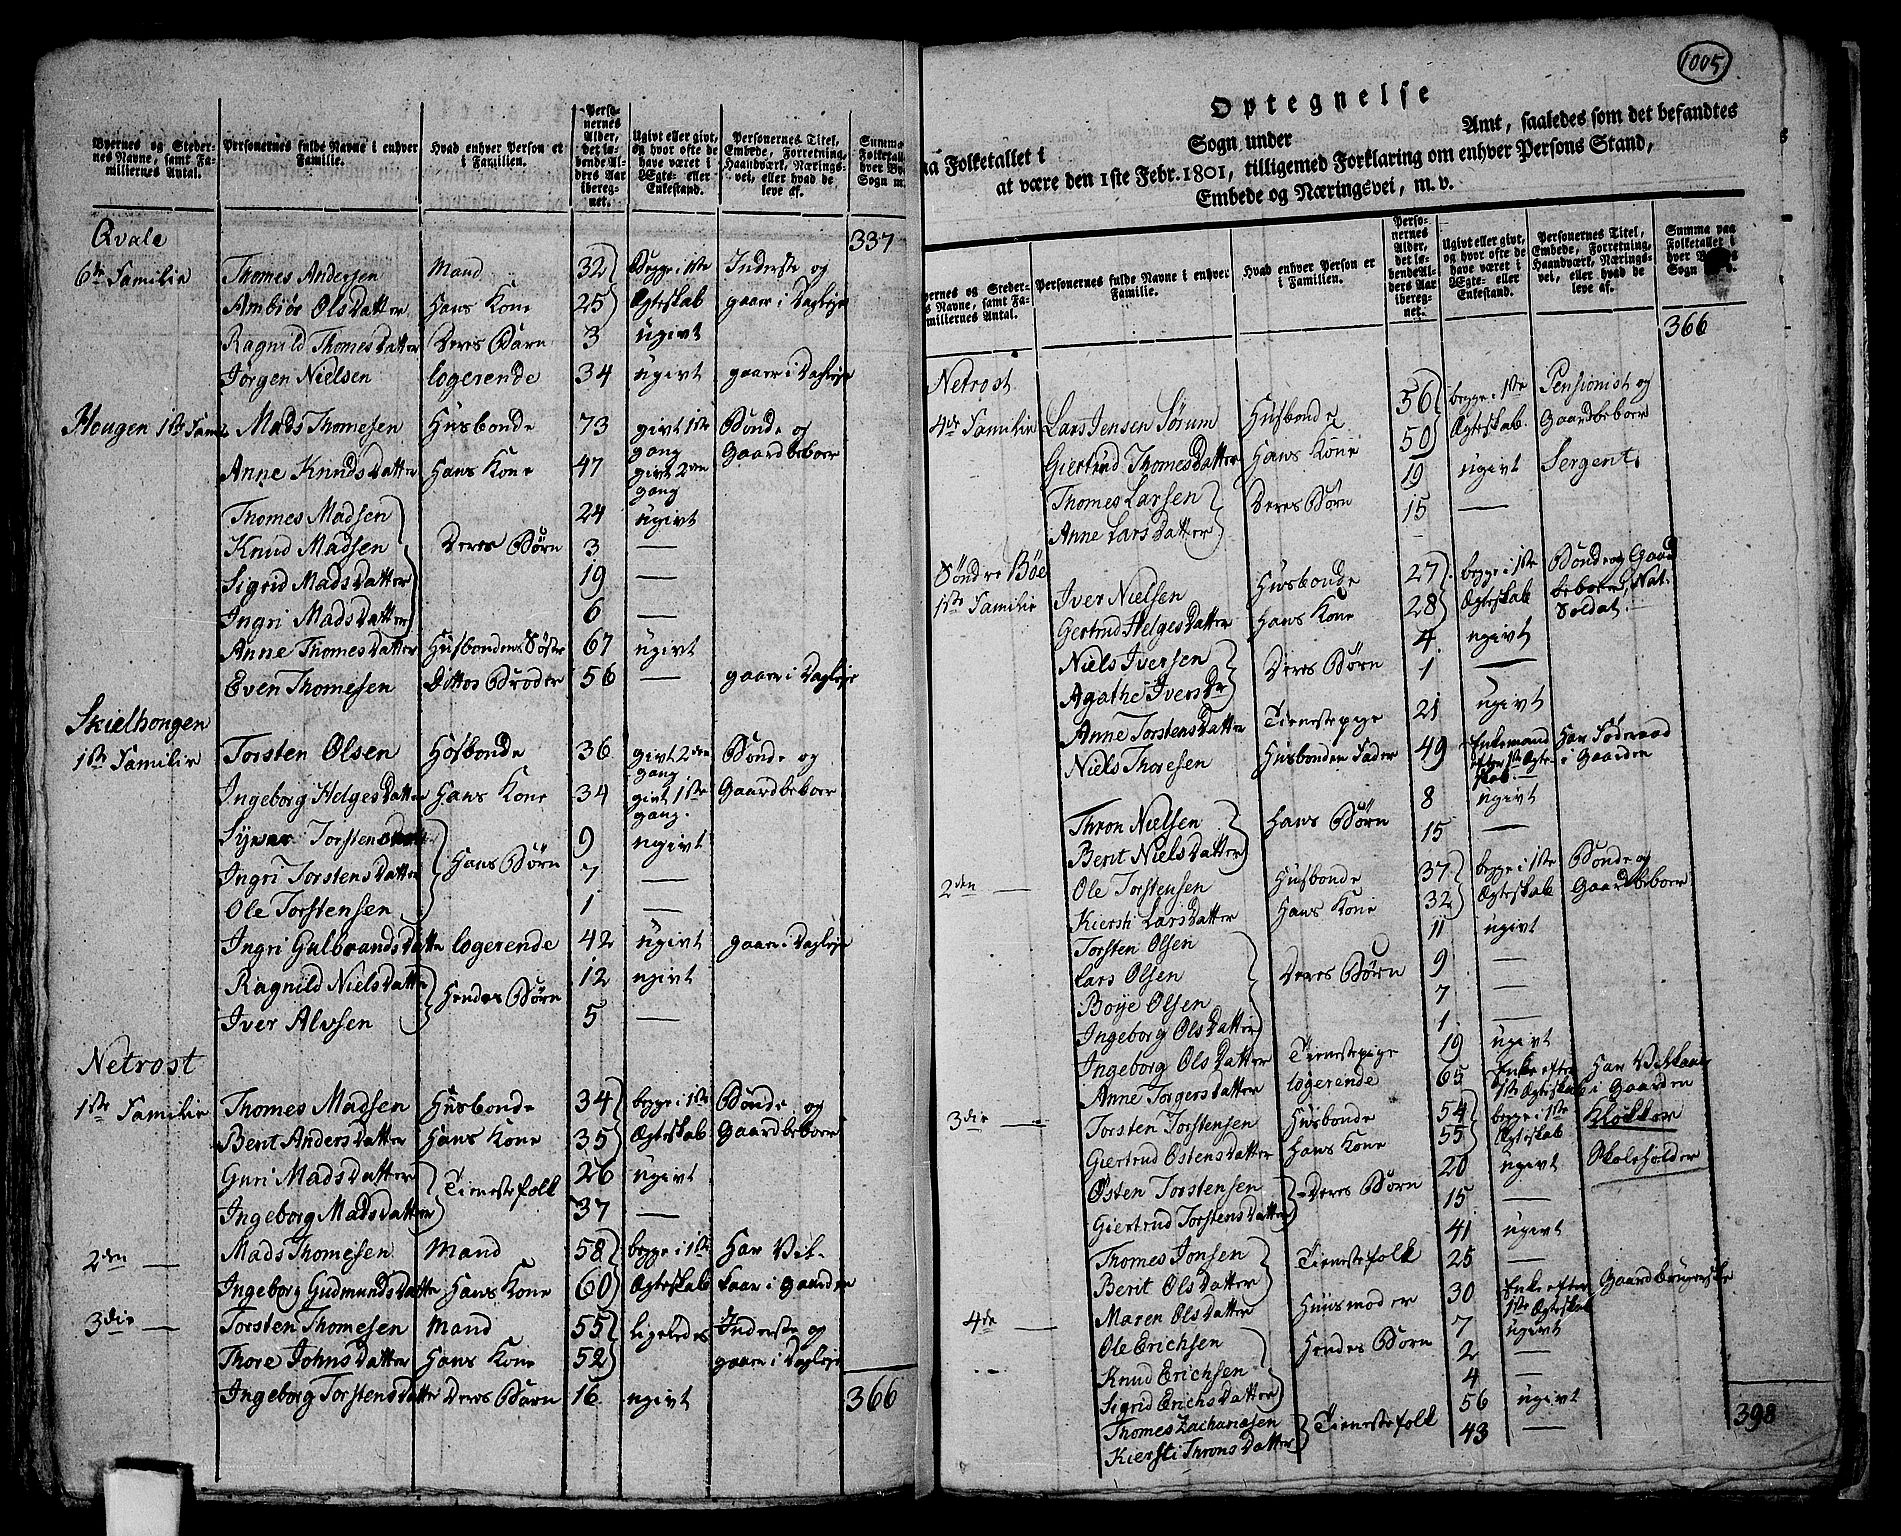 Byernes og Steder-
nes Navne, samt Fa-
milliernes Antal.
Personernes fulde Navne i enhver
Familie.
Hvad enhver Person er
i Familien.
Perso-
nernes
Alder,
det lø-
bende Al-
ders Aar
ibereg-
net.
Ugivt eller givt,
og hvor ofte de
have været i
Ægte- eller
Enkestand.
Personernes Titel,
Embede, Forretning,
Haandværk, Nærings-
vei, eller hvad de
leve af.
Summa
Folketall
hver By
Sogn m.
Qvale 337
6te Familie Thomes Andersen Mand 32 Begge i 1ste Inderste og
Ambiør OlsDatter Hans Kone 25 Ægteskab gaaer i Dagleje
Ragnild ThomesDatter Deres Barn 3 ugivt
Jørgen Nielsen logerende 34 ugivt gaaer i Dagleje
Hougen 1ste Fam: Mads Thomesen Husbonde 73 givt 1ste Bonde og
gang Gaardbeboer
Anne KnudsDatter Hans Kone 47 givt 2den
gang
Thomes Madsen 24 ugivt
Knud Madsen Deres Børn 3 —
Sigrid MadsDatter 19 —
Ingri MadsDatter 6 —
Anne ThomesDatter Husbondens Søster 67 ugivt
Even Thomesen Dittos Broder 56 — gaaer i Dagleje
Skielhougen
1ste Familie Torsten Olsen Hosbonde 36 givt 2den Bonde og
gang
Ingeborg HelgesDatter Hans Kone 34 givt 1ste Gaardbeboer
gang.
Torstens 9 ugivt
Ingri TorstensDatter Hans Børn 7 —
Ole Torstensen 1 —
Ingri GulbrandsDatte logerende 42 ugivt gaaer i Dagleje
Ragnild NielsDatte Hendes Børn 12 ugivt
Iver Alvsen 5 —
Netrost
1ste Familie Thomes Madsen Husbonde 34 begge i 1ste Bonde og
Berit AndersDatter Hans Kone 35 Ægteskab Gaardbeboer
Guri MadsDatter Tienestefolk 26 ugivt
Ingeborg MadsDatter 37 —
2den — Mads Thomesen Mand 58 begge i 1ste Har Vil-
Ingeborg GudmundsDatte Hans Kone 60 Ægteskab kaar i Gaarden
3die — Torsten Thomesen Mand 55 ligeledes Inderste og
Thore JohnsDatter Hans Kone 52 gaaer i Dagleje
Ingeborg TorstensDatter Deres Barn 16 ugivt 366
1005
Optegnelse
Folketallet i Sogn under Amt, saaledes som det befandtes
at være den 1ste Febr. 1801, tilligemed Forklaring om enhver Persons Stand,
Embede og Næringsvei, m. v.
ernes og Steder-
s Navne, samt Fa-
milliernes Antal.
Personernes fulde Navne i enhver
Familie.
Hvad enhver Person er
i Familien.
Perso-
nernes
Alder,
det lø-
bende Al-
ders Aar
ibereg-
net.
Ugivt eller givt,
og hvor ofte de
have været i
Ægte- eller
Enkestand.
Personernes Titel,
Embede, Forretning,
Haandværk, Nærings-
vei, eller hvad de
leve af.
Summa paa
Folketallet i
hver
Sogn
366
Netrost
4de Familie Lars Jensen Sørum Husbonde 56 begge i 1ste Pensionist og
Giertrud ThomesDatter Hans Kone 50 Ægteskab. Gaardbeboer
Thomes Larsen Deres Børn 19 ugivt Sergent.
Anne LarsDatter 15 —
Søndre Bøe
1ste Familie Iver Nielsen Husbonde 27 begge i 1ste Bonde og Gaard
Gertrud HelgesDatter Hans Kone 28 Ægteskab beboer, Nat.
Soldat.
Niels Iversen Deres Børn 4 ugivt
Agathe IversDr 1 —
Anne TorstensDatter Tienestepige 21 ugivt
Niels Thoresen Husbonden Fader 49 Enkemand Har Føderaad
efter 1ste Ægte- i Gaarden
skab.
Thron Nielsen Hans Børn 8 ugivt
Berit NielsDatter 15 —
2den — Ole Torstensen Husbonde 37 begge i 1ste Bonde og
Kiersti LarsDatter Hans Kone 32 Ægteskab Gaardbeboer
Torsten Olsen 11 ugivt
Lars Olsen Deres Børn 9 —
Boye Olsen 7 —
Ingeborg OlsDatter 1 —
Ingeborg OlsDatter Tienestepige 19 ugivt
Anne TorgersDatter logerende 65 Enke efter Har Vilkaar
1ste Ægteskab i Gaarden
3die — Torsten Torstensen Husbonde 54 begge i 1ste Klokker
Giertrud OstensDatter Hans Kone 55 Ægteskab
Østen Torstensen Deres Børn 20 ugivt Skoleholder
Giertrud TorstensDatter 15 —
Thomes Jonsen Tienestefolk 41 ugivt
Berit OlsDatter 25 —
4de — Maren OlsDatter Huusmoder 30 Enke efter Gaardbrugerske
1ste Ægteskab
Ole Erichsen Hendes Børn 7 ugivt
Knud Erichsen 2 —
Sigrid ErichsDatter 4 —
Thomes Zachariasen Tienestefolk 56 ugivt
Kiersti ThronsDatter 43 —
398